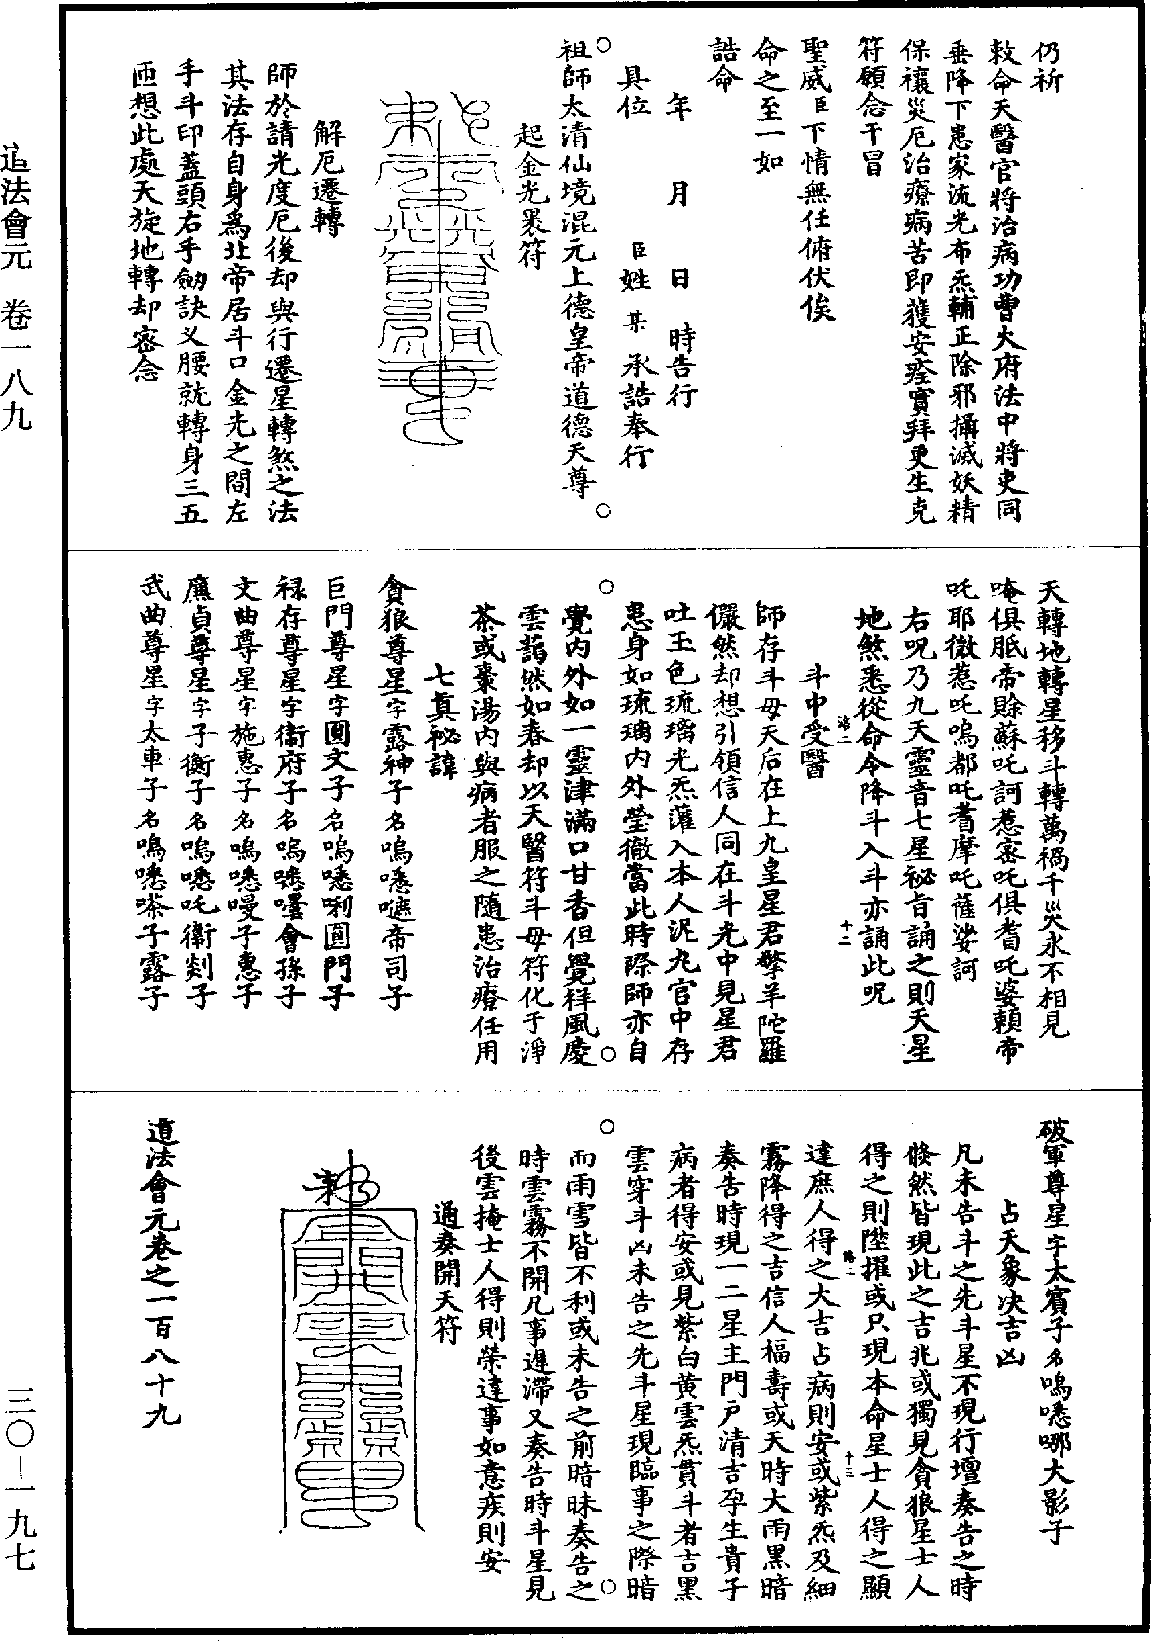 仍祈
敕命天醫官將治病功曹大府法中將吏同
垂降下患家流光布炁輔正除邪攝滅妖精
保禳災厄治療病苦即獲安痊實拜更生克
符願念干冒
聖威臣下情無任俯伏俟
命之至一如
誥命
年　月　日　時告行
具位　　臣姓某承誥奉行
祖師太清仙境混元上德皇帝道德天尊
起金光異符
解厄遷轉
師於請光度厄後却與行遷星轉煞之法
其法存自身爲北帝居斗口金光之間左
手斗印蓋頭右手劒訣叉腰就轉身三五
匝想此處天旋地轉却密念
天轉地轉星移斗轉萬禍千災永不相見
唵俱胝帝賒蘇吒訶惹密吒俱耆吒婆賴帝
吒耶微惹吒嗚都吒耆摩吒薩娑訶
右呪乃九天靈音七星祕旨誦之則天星
地煞悉從命令降斗入斗亦誦此呪
斗中受醫
師存斗母天后在上九皇星君擎羊陀羅
儼然却想引領信人同在斗光中見星君
吐玉色琉璃光炁灌入本人泥丸宮中存
患身如琉璃内外瑩徹當此時際師亦自
覺内外如一靈津滿口甘香但覺祥風慶
雲藹然如春却以天醫符斗母符化于淨
茶或棗湯内與病者服之隨患治療任用
七眞祕諱
貪狼尊星字露神子名嗚㗭嚤帝司子
巨門尊星字圓文子名嗚㗭唎圓門子
祿存尊星字衞府子名嗚㗭囉會孫子
文曲尊星字施惠子名嗚㗭嘜子惠子
廉貞尊星字子衡子名嗚㗭吒衞剡子
武曲尊星字太車子名嗚㗭嗏子露子
破軍尊星字太賓子名嗚㗭哪大影子
占天象决吉凶
凡未告斗之先斗星不現行壇奏告之時
倏然皆現此之吉兆或獨見貪狼星士人
得之則陞擢或只現本命星士人得之顯
達庶人得之大吉占病則安或紫炁及細
霧降得之吉信人福壽或天時大雨黑暗
奏告時現一二星主門戸清吉孕生貴子
病者得安或見紫白黄雲炁貫斗者吉黑
雲穿斗凶未告之先斗星現臨事之際暗
而雨雪皆不利或未告之前暗昧奏告之
時雲霧不開凡事遲滯又奏告時斗星見
後雲掩士人得則榮達事如意疾則安
通奏開天符
道法會元卷之一百八十九
道法會元　卷一八九
三〇-一九七